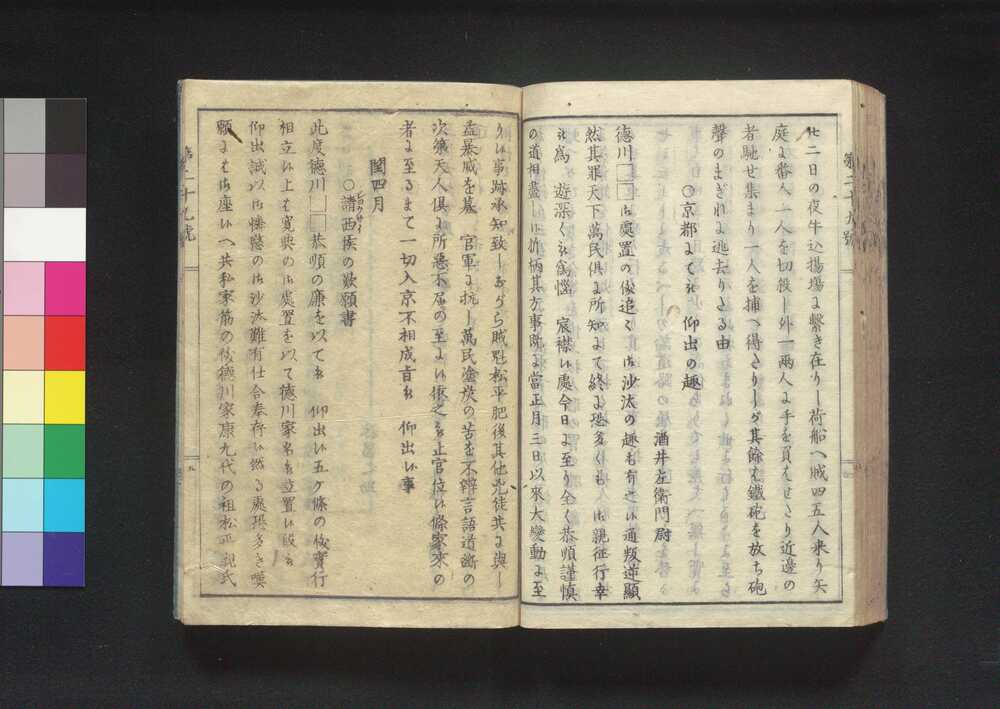 第二十九號
廿二日の夜牛込揚場に繋き在りし荷船へ賊四五人来り矢
庭に番人一人を切殺し外一両人に手を負はせたり近邊の
者馳せ集まり一人を捕へ得たりしが其餘は鐵砲を放ち砲
聲のまぎれに逃去りたる由
○京都にて被 仰出の趣
酒井左衛門尉
徳川□□御處置の儀追々御沙汰の趣も有之候通叛逆顕
然其罪天下萬民倶に所知にて終に恐多くも 御親征行幸
被為 遊深く被為惱 宸襟候處今日に至り全く恭順謹慎
の道相盡し候折柄其方事既に當正月三日以來大變動に至
り候事跡承知致しながら賊魁松平肥後其他兇徒共に與し
益暴威を募 官軍に抗し萬民塗炭の苦を不辨言語道断の
次第天人倶に所惡不届の至に候依之被止官位候條家来の
者に至るまて一切入京不相成旨被 仰出候事
閏四月
○請西侯の歎願書
此度徳川□□恭順の廉を以て被 仰出候五ケ條の儀實行
相立候上は寛典の御處置を以て徳川家名被立置候段被
仰出誠以御憐愍の御沙汰難有仕合奉存候然る處恐多き嘆
願には御座候へ共私家筋の儀徳川家康九代の祖松平親氏
第二十九號
九